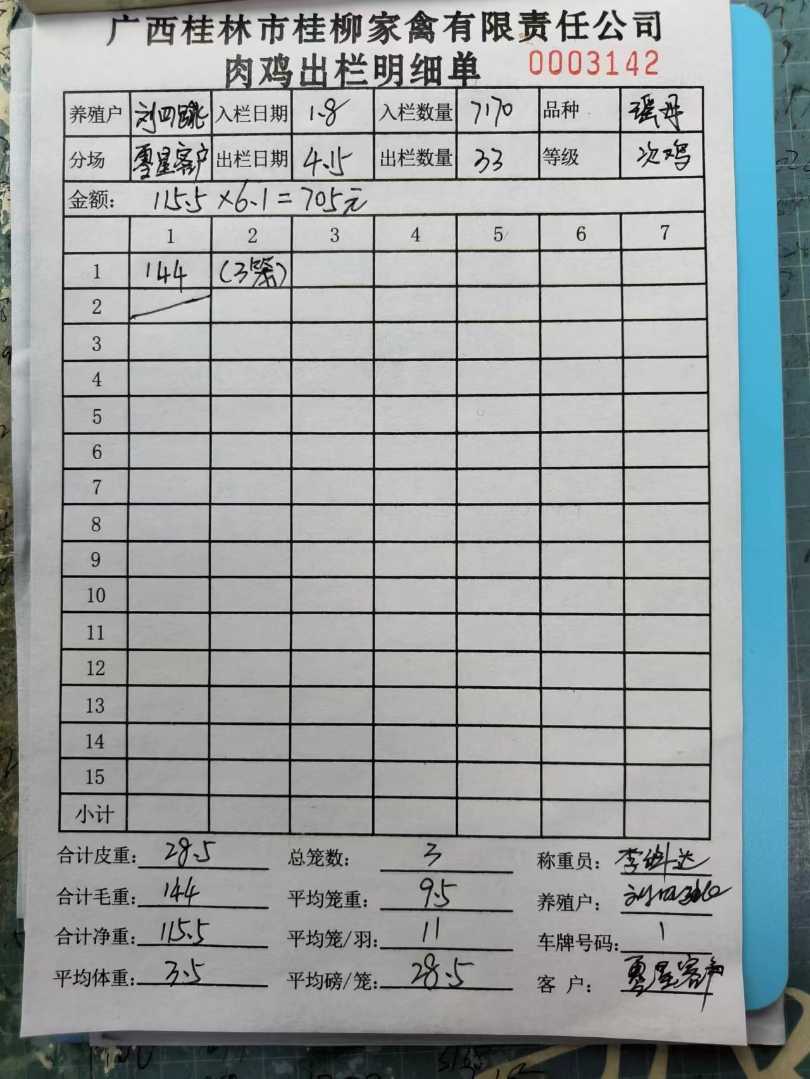 广西桂林市桂柳家禽有限责任公司
肉鸡出栏明细单 0003142
养殖户 刘四跳 入栏日期 1.8 入栏数量 7170 品种 瑶丹
分场 零星客户 出栏日期 4.15 出栏数量 33 等级 次鸡
金额： 115.5×6.1=705元
1 2 3 4 5 6 7
1 144 (3笼)
2
3
4
5
6
7
8
9
10
11
12
13
14
15
小计
合计皮重： 28.5 总笼数： 3 称重员： 李 达
合计毛重： 144 平均笼重： 9.5 养殖户：
合计净重： 115.5 平均笼/羽： 11 车牌号码： 1
平均体重： 3.5 平均磅/笼： 28.5 客 户： 零星客户